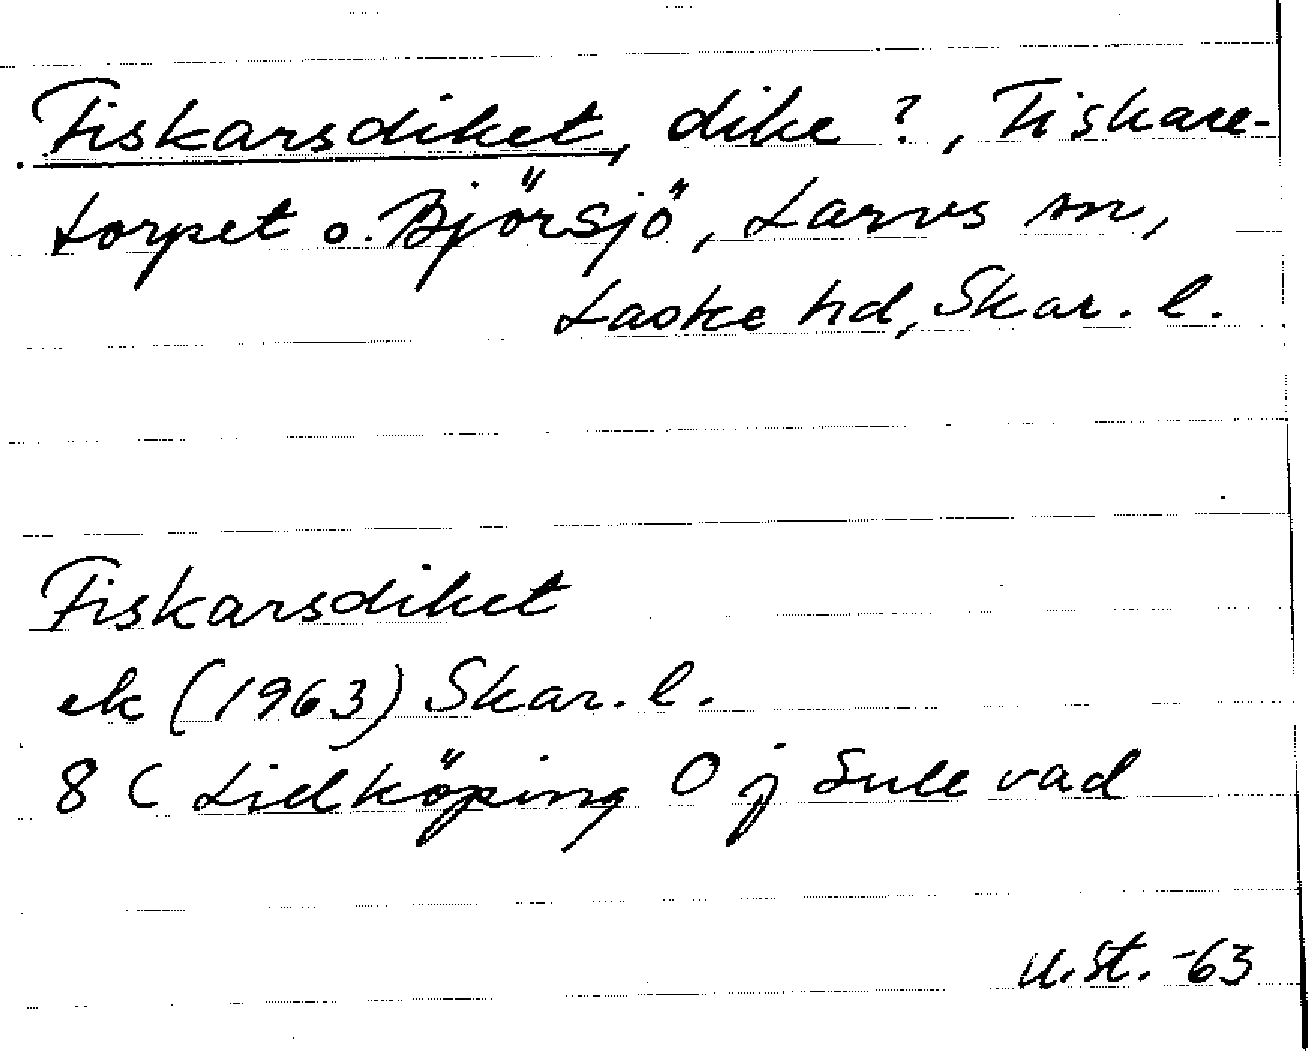 Fiskarsdiket, dike?, Fiskare-
torpet o. Björsjö, Larvs sn,
Laske hd, Skar. l.
Fiskarsdiket
ek (1963) Skar. l.
8 C Lidköping 0 j Sulevad
U.St. -63